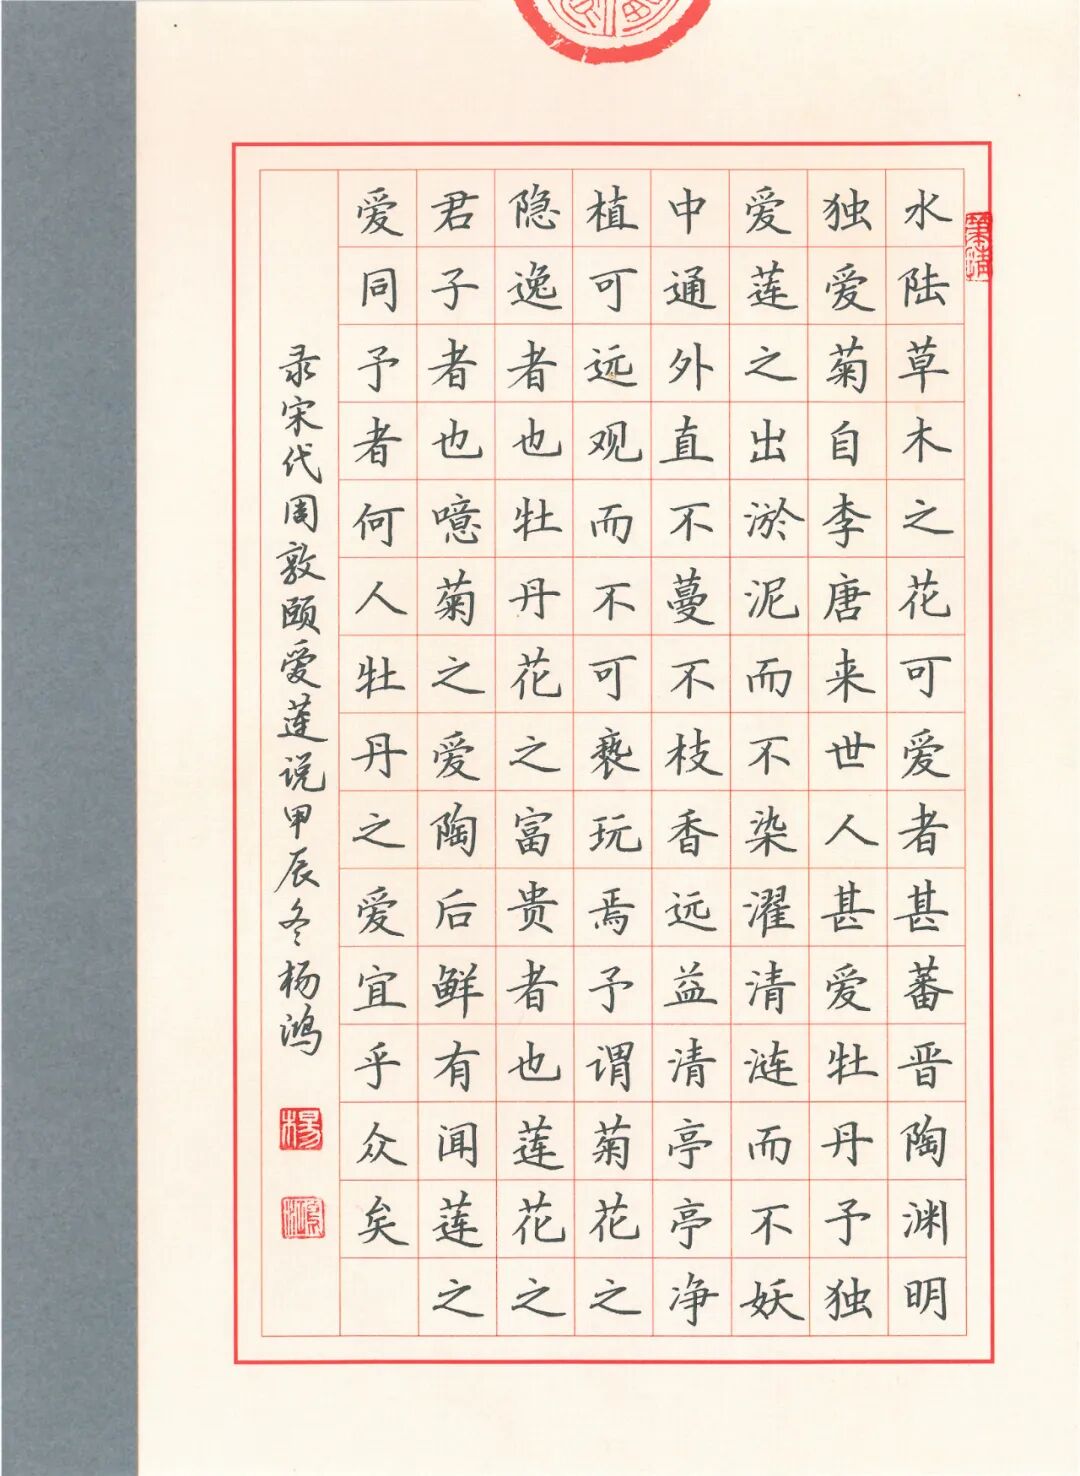 水陆草木之花可爱者甚蕃晋陶渊明
独爱菊自李唐来世人甚爱牡丹予独
爱莲之出淤泥而不染濯清涟而不妖
中通外直不蔓不枝香远益清亭亭净
植可远观而不可亵玩焉予谓菊花之
隐逸者也牡丹花之富贵者也莲花之
君子者也噫菊之爱陶后鲜有闻莲之
爱同予者何人牡丹之爱宜乎众矣
录宋代周敦颐爱莲说甲辰冬杨鸿
杨
鸿